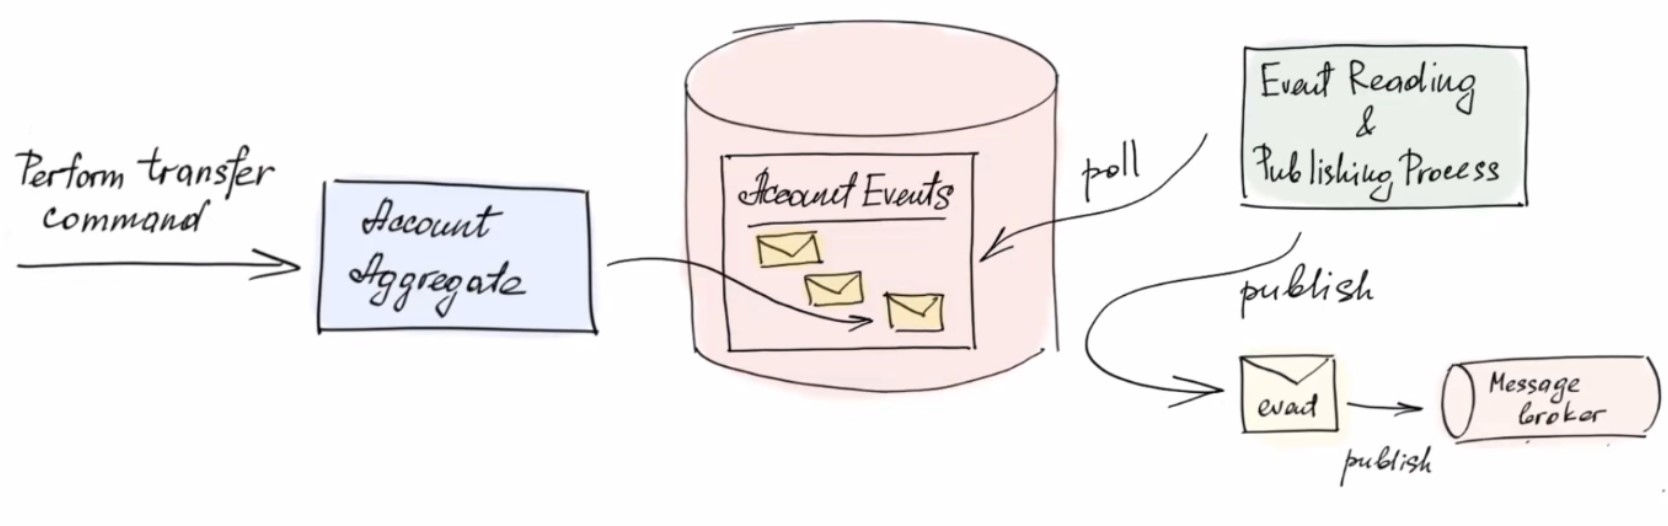 Perform transfer
command
Account
Aggregate
Account Events
poll
Event Reading
&
Publishing Process
publish
event
publish
Message
broker